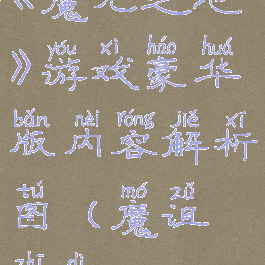 《魔之地
yóu xì háo huá
》游戏豪华
bǎn nèi róng jiě xī
版内容解析
tú mó zǔ
图(魔诅
zhī dì